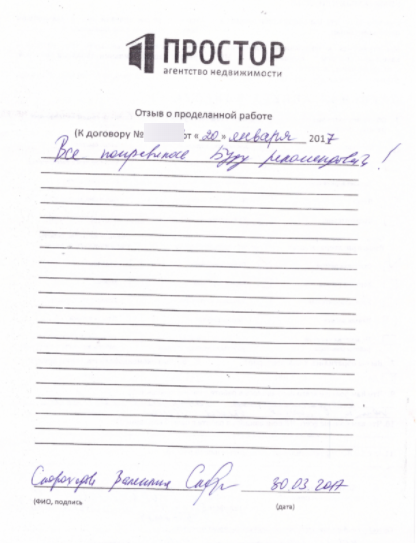 ПРОСТОР
агентство недвижимости
Отзыв о проделанной работе
(К договору № от «20» января 2017
Все понравилось Буду рекомендовать!
Валентина 30 03 2017
(ФИО, подпись (дата)